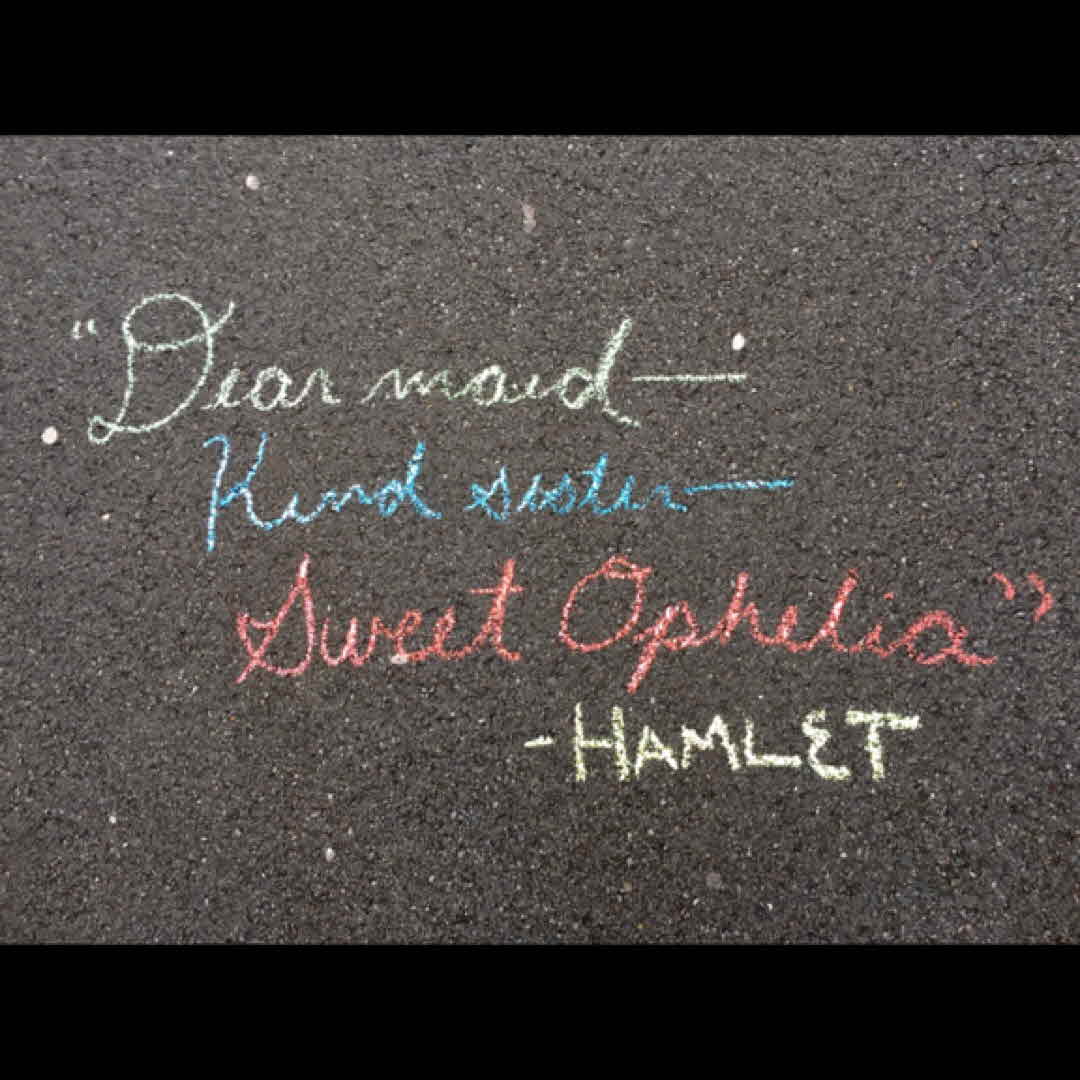 "Dear maid—
Kind sister—
Sweet Ophelia"
-HAMLET